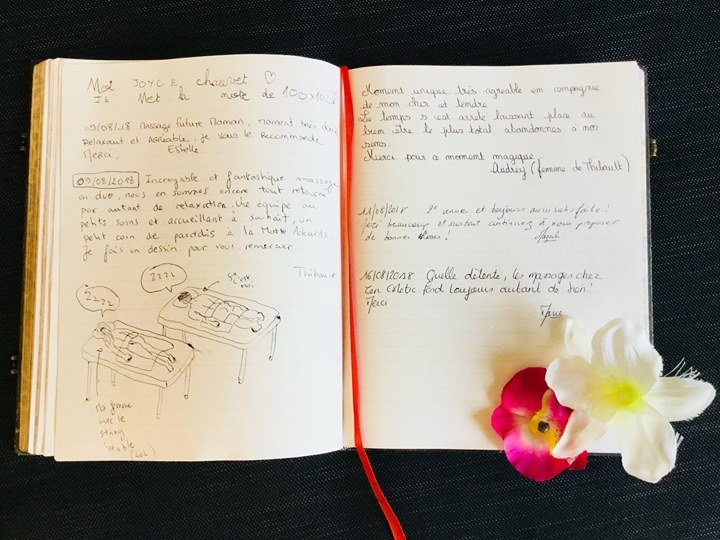 Moi JOYCE chauvet ♡
JE Met la note de 100x10
09/08/18 Massage future Maman, moment très doux
Relaxant et Agréable, je vous le Recommande.
Merci, Estelle
09/08/2018 Incroyable et fantastique massage
en duo, nous en sommes encore tout retourné
par autant de relaxation. Une équipe au
petits soins et accueillant à souhait, un
petit coin de paradis à la Motte Achards.
Je fais un dessin pour vous remercier.
Thibault
zzzz
zzzz
ça c'est
moi
Ma femme
avec le
string
(LOL)
Moment unique très agréable en compagnie
de mon cher et tendre
Le temps s'est arrêté laissant place au
bien être le plus total, abandonnés à nos
sens.
Merci pour ce moment magique
Audrey (femme de Thibault)
11/08/2018 2e venue et toujours aussi satisfaite!
Merci beaucoup et surtout continuez à nous proposer
de bonnes choses!
16/08/2018 Quelle détente, les massages chez
Zen font toujours autant de bien!
Merci
Marie